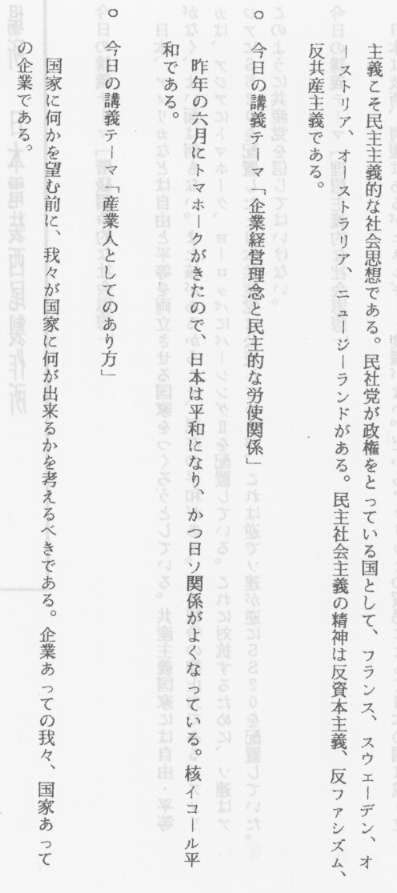 主義こそ民主主義的な社会思想である。民社党が政権をとっている国として、フランス、スウェーデン、オ
ーストリア、オーストラリア、ニュージーランドがある。民主社会主義の精神は反資本主義、反ファシズム、
反共産主義である。
○　今日の講義テーマ「企業経営理念と民主的な労使関係」
昨年の六月にトマホークがきたので、日本は平和になり、かつ日ソ関係がよくなっている。核イコール平
和である。
○　今日の講義テーマ「産業人としてのあり方」
国家に何かを望む前に、我々が国家に何が出来るかを考えるべきである。企業あっての我々、国家あって
の企業である。